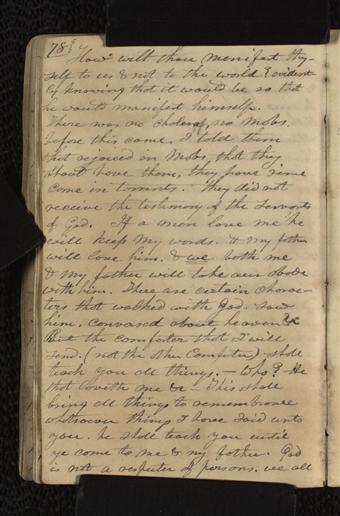 78
How wilt thou manifest thy-
self to us & not to the world? evident-
ly knowing that it would be so that
he would manifest himself.
There was no cholera, no Mobs,
before this came. I told them
that rejoiced in Mobs, that they
should have them, they have since
come in torrents. They did not
receive the testimony of the servants
of God. If a man love me he
will keep my words. & my father
will love him. & we both me
& my father will take our abode
with him. There are certain charac-
ters that walked with God. saw
him, conversed about heaven &c
But the comforter that I will
send. (not the other Comforter) shall
teach you all things. — Who? He
that loveth me &c — This shall
bring all things to remembrance
whatsoever things I have said unto
you. he shall teach you until
ye come to me & my father. God
is not a respecter of persons. we all